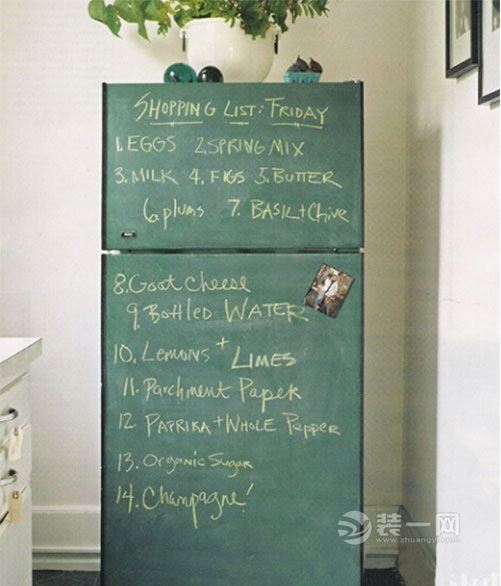 SHOPPING LIST: FRIDAY
1. EGGS 2. SPRING MIX
3. MILK 4. FIGS 5. BUTTER
6. plums 7. BASIL + Chive
8. Goat Cheese
9. Bottled WATER
10. Lemons + LIMES
11. Parchment Paper
12. PAPRIKA + WHOLE Pepper
13. Organic Sugar
14. Champagne!
装一网